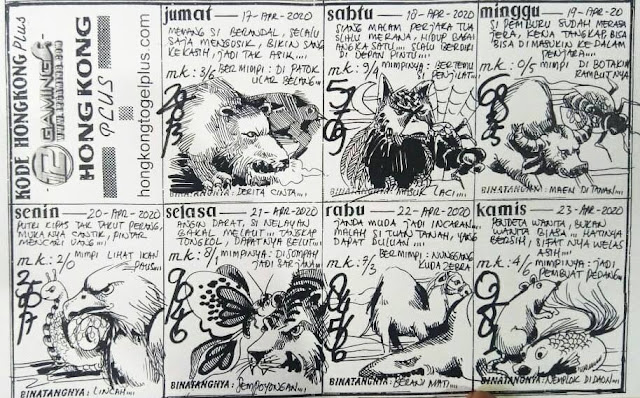 KODE HONGKONG Plus
12 GAMING
HONG KONG
PLUS
hongkongtogelplus.com
jumat — 17-APR-2020
MEMANG SI BERANDAL, SELALU
SAJA MENGUSIK, BIKIN SANG
KEKASIH, JADI TAK ASIK....
mk: 3/6 BERMIMPI: DI PATOK
ULAR BELANG...
BINATANGNYA: DERITA CINTA...
sabtu — 18-APR-2020
SIANG MALAM PERJAKA TUA
SLALU MERANA, HIDUP BAGAI
ANGKA SATU... SLALU BERDIRI
DI DEPAN PINTU...
mk: 9/4 MIMPINYA: BERTEMU
PENJILAT...
BINATANGNYA: MABUK LACI...
minggu — 19-APR-20
SI PEMBURU SUDAH MERASA
JERA, KENA TANGKAP, BISA
BISA DI MASUKIN KE DALAM
PENJARA...
mk: 0/5 MIMPI DI BOTAKIN
RAMBUTNYA
BINATANGNYA: MAEN DI TAMAN...
senin — 20-APR-2020
PUTRI KIPAS TAK TAKUT PERANG,
MUKANYA CANTIK, PINTAR
MENCARI UANG...
mk: 2/0 MIMPI LIHAT IKAN
PAUS...
BINATANGNYA: LINCAH...
selasa — 21-APR-2020
ANGIN DARAT, SI NELAYAN
BAKAL MELAUT... TANGKAP
TONGKOL, DAPATNYA BELUT...
mk: 8/1 MIMPINYA: DISUMPAH
JADI SARJANA
BINATANGNYA: SEMPOYONGAN...
rabu — 22-APR-2020
JANDA MUDA JADI INCARAN
MALAH SI TUAN TANAH, YANG
DAPAT DULUAN...
mk: 7/3 BERMIMPI: NUNGGANG
KUDA ZEBRA
BINATANGNYA: BERANI MATI...
kamis — 23-APR-2020
PENDETA WANITA, BUKAN
WANITA BIASA... HATINYA
BERSIH, SIFATNYA WELAS
ASIH...
mk: 4/6 MIMPINYA: JADI
PEMBUAT PEDANG
BINATANGNYA: NEMPLOK DI DAON...